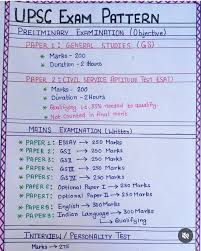 UPSC EXAM PATTERN
PRELIMINARY EXAMINATION (Objective)
PAPER 1 : GENERAL STUDIES (GS)
Marks - 200
Duration - 2 Hours
PAPER 2 : CIVIL SERVICE APTITUDE TEST (CSAT)
Marks - 200
Duration - 2 Hours
Qualifying i.e. 33% needed to qualify.
Not counted in final merit
MAINS EXAMINATION (Written)
* PAPER 1 : ESSAY → 250 Marks
* PAPER 2 : GS I → 250 Marks
* PAPER 3 : GS II → 250 Marks
* PAPER 4 : GS III → 250 Marks
* PAPER 5 : GS IV → 250 Marks
* PAPER 6 : Optional Paper I → 250 Marks
* PAPER 7 : Optional Paper II → 250 Marks
* PAPER 8 : English → 300 Marks
* PAPER 9 : Indian Language → 300 Marks
Qualifying
INTERVIEW / PERSONALITY TEST
Marks → 275